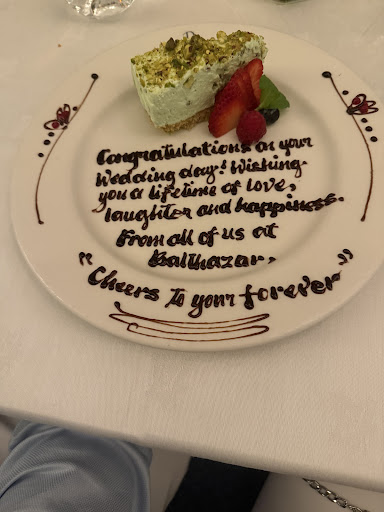 Congratulations on your
Wedding day! Wishing
you a lifetime of love,
laughter and happiness.
From all of us at
Balthazar.
"Cheers to your forever"